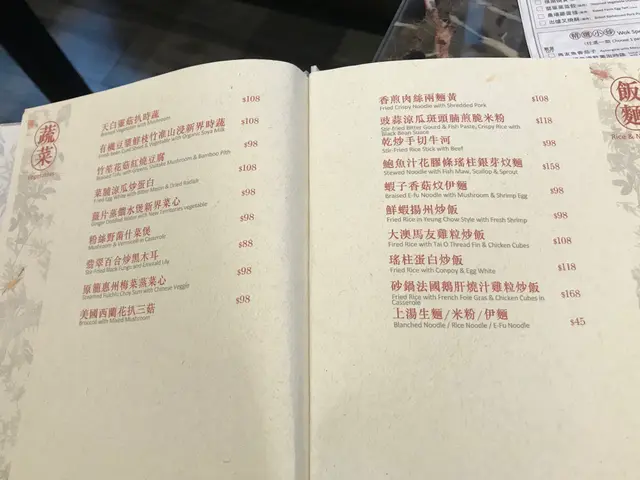 蔬菜
Vegetables
天白菇菇扒時蔬
Braised Vegetable with Mushroom
$108
有機豆漿鮮枝竹淮山浸新界時蔬
Fresh Bean Curd Sheet & Vegetable with Organic Soya Milk
$108
竹笙花菇紅燒豆腐
$98
菜脯涼瓜炒蛋白
$108
薑片蒸餾水煲新界菜心
Ginger Distilled Water with New Territories Vegetable
$98
粉絲野菌什菜煲
Mushroom & Vermicelli in Casserole
$98
翡翠百合炒黑木耳
Stir-Fried Black Fungi and Emerald Lily
$88
原籠惠州梅菜蒸菜心
Steamed Huizhou Choy Sum with Chinese Veggie
$98
美國西蘭花扒三菇
Broccoli with Mixed Mushroom
$98
飯麵
香煎肉絲兩麵黃
Fried Crispy Noodle with Shredded Pork
$108
豉蒜涼瓜斑頭腩煎脆米粉
Stir-Fried Bitter Gourd & Fish Paste, Crispy Rice with
Black Bean Sauce
$118
乾炒手切牛河
Stir-Fried Rice Stick with Beef
$98
鮑魚汁花膠條瑤柱銀芽炆麵
Stewed Noodle with Fish Maw, Scallop & Sprout
$158
蝦子香菇炆伊麵
Braised E-Fu Noodle with Mushroom & Shrimp Egg
$98
鮮蝦揚州炒飯
Fried Rice in Yeung Chow Style with Fresh Shrimp
$98
大澳馬友雞粒炒飯
Fired Rice with Tai O Thread Fin & Chicken Cubes
$108
瑤柱蛋白炒飯
Fried Rice with Conpoy & Egg White
$118
砂鍋法國鵝肝燒汁雞粒炒飯
Fried Rice with French Foie Gras & Chicken Cubes in
Casserole
$168
上湯生麵/米粉/伊麵
Blanched Noodle / Rice Noodle / E-Fu Noodle
$45
精選小炒